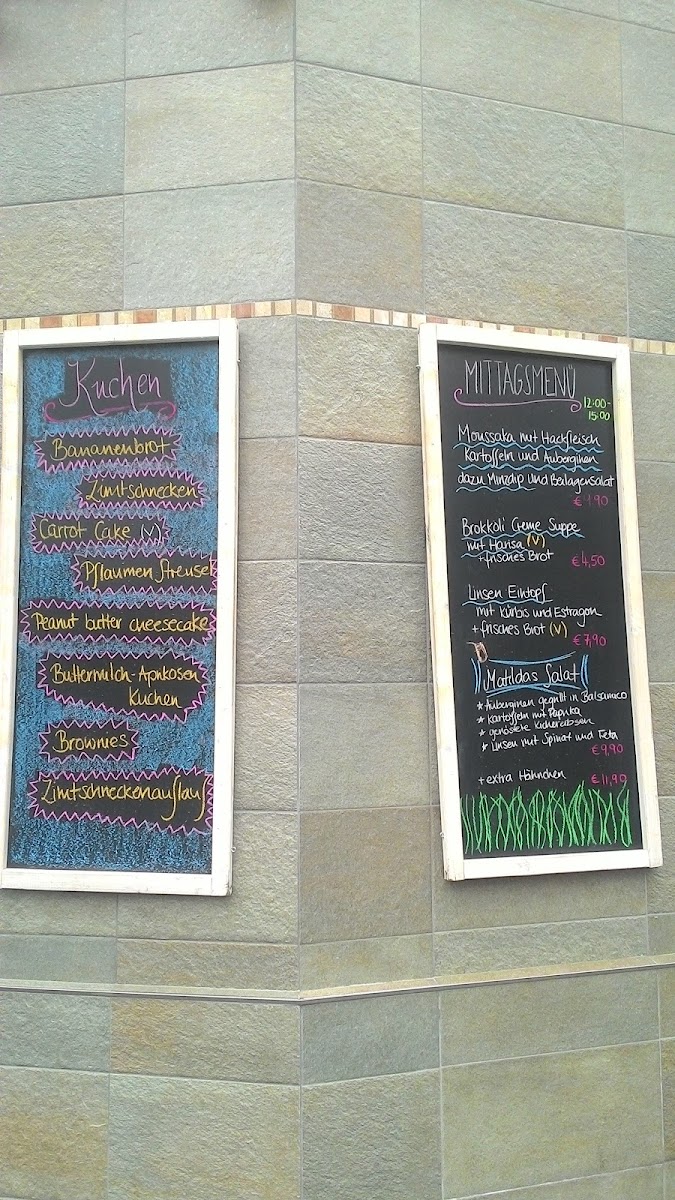 Kuchen
Bananenbrot
Zimtschnecken
Carrot Cake (V)
Pflaumen Streusel
Peanut butter cheesecake
Buttermilch-Aprikosen
Kuchen
Brownies
Zimtschneckenauflauf
MITTAGSMENÜ
12:00-
15:00
Moussaka mit Hackfleisch
Kartoffeln und Auberginen
dazu Minzdip und Beilagensalat
Brokkoli Creme Suppe
mit Harisa (V)
+frisches Brot €4,50
Linsen Eintopf
mit Kürbis und Estragon
+frisches Brot (V)
€7,90
Matildas Salat
* Auberginen gegrillt in Balsamico
* Kartoffeln mit Paprika
* geröstete Kichererbsen
* Linsen mit Spinat und Feta
€9,90
+extra Hähnchen €11,90